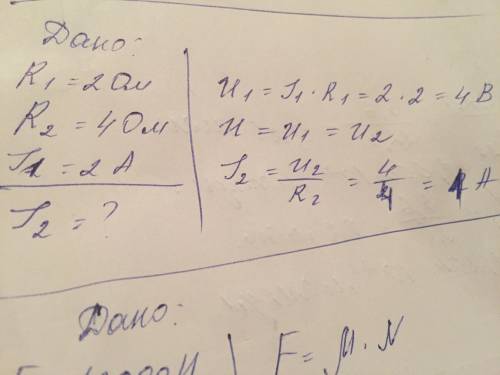 Дано:
R1 = 2 Ом
R2 = 4 Ом
I1 = 2 А
I2 = ?
U1 = I1 · R1 = 2 · 2 = 4 В
U = U1 = U2
I2 = U2/R2 = 4/4 = 1 А
Дано:
F = M · N